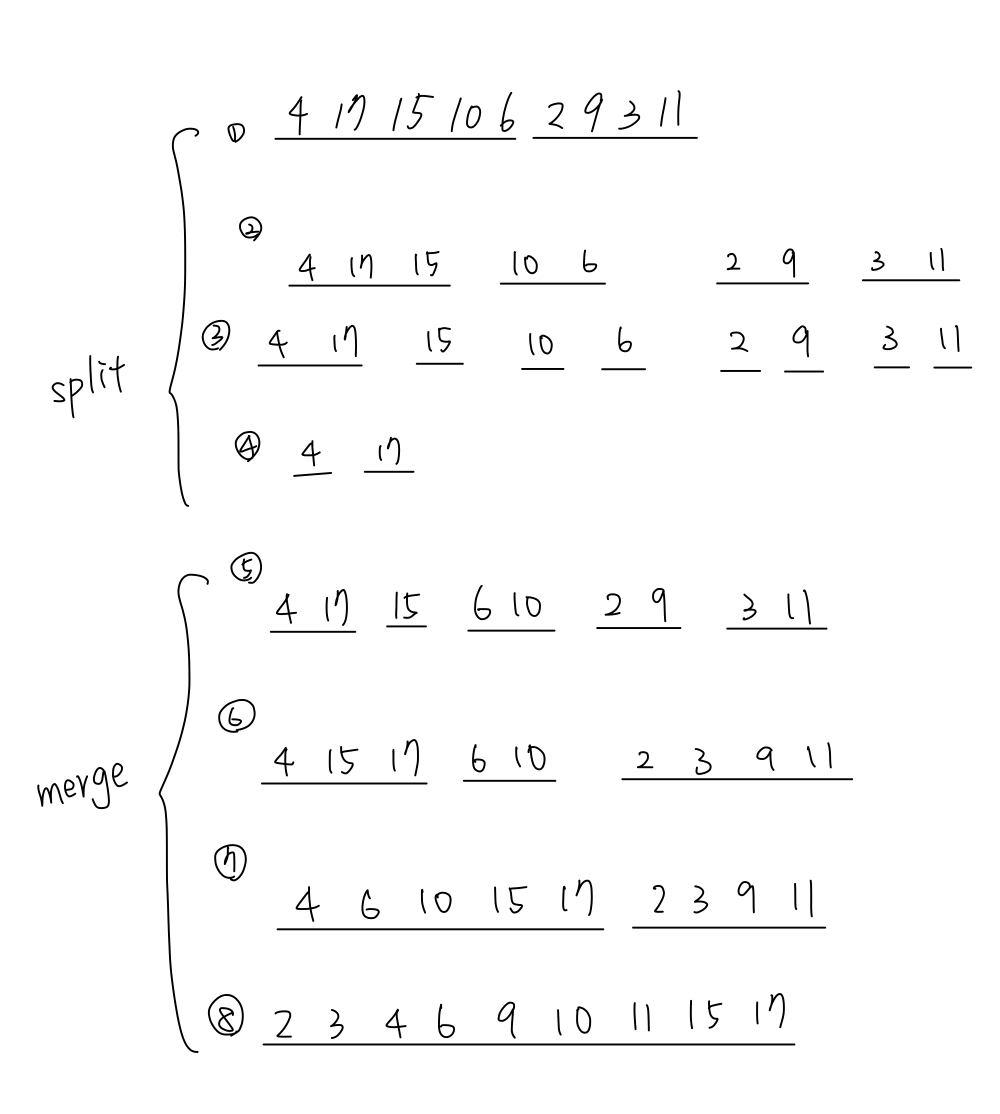 ① 4 17 15 10 6 2 9 3 11
②
4 17 15 10 6 2 9 3 11
③ 4 17 15 10 6 2 9 3 11
split
④ 4 17
⑤
4 17 15 6 10 2 9 3 11
⑥
4 15 17 6 10 2 3 9 11
merge
⑦
4 6 10 15 17 2 3 9 11
⑧ 2 3 4 6 9 10 11 15 17